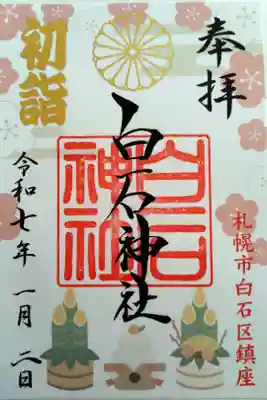 奉拝
初詣
白石神社
白石神社
札幌市白石区鎮座
令和七年 一月 二日